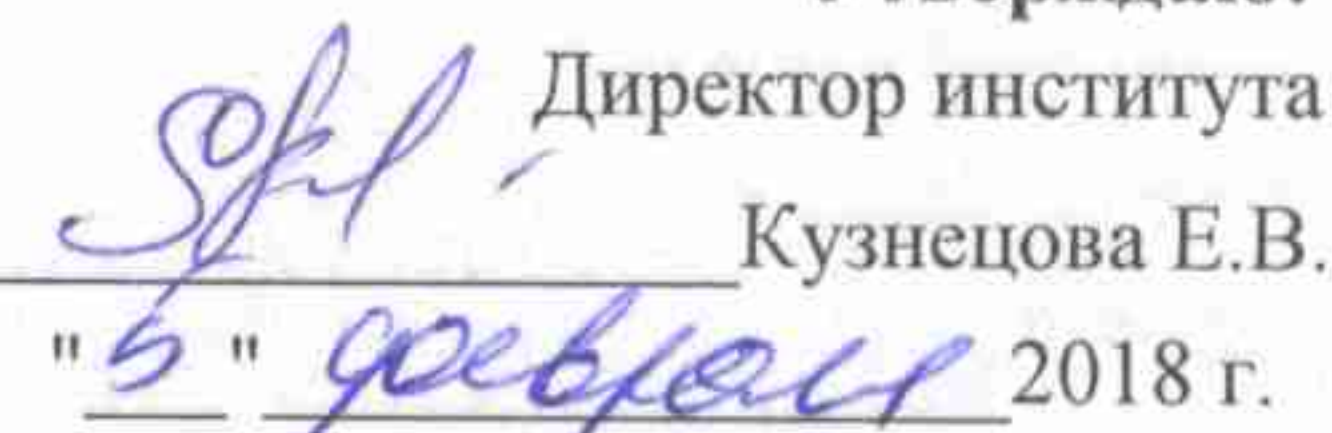 Утверждаю:
Директор института
Кузнецова Е.В.
"5" февраля 2018 г.